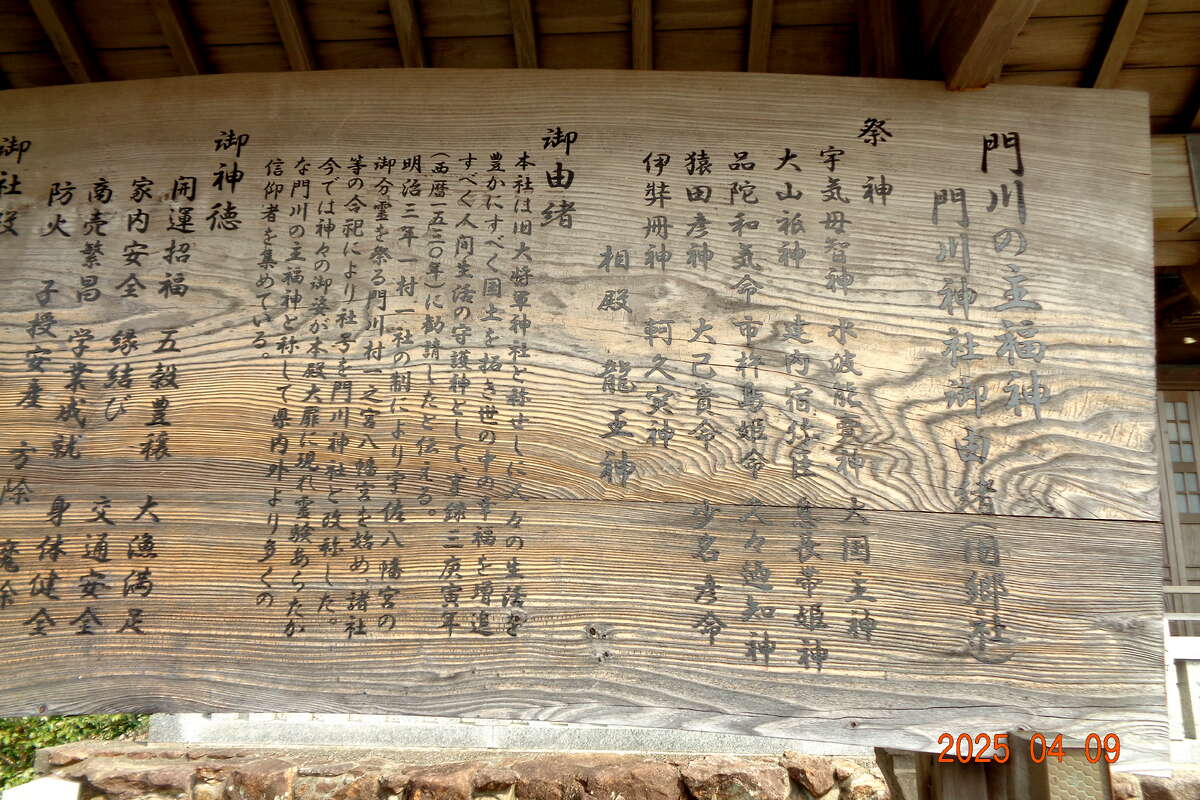 門川の主福神
門川神社御由緒(旧郷社)
祭神
宇気母智神 水波能賣神 大国主神
大山祇神 建内宿祢臣 息長帯姫神
品陀和気命 市杵島姫命 迦知神
猿田彦神 大己貴命 少名彦命
伊弉冊神 軻久突神
相殿 龍王神
御由緒
本社は旧大将軍神社と称せしに人々の生活を
豊かにすべく国土を拓き世の中の幸福を増進
すべく人間生活の守護神として、享録三庚寅年
(西暦一五三〇年)に勧請したと伝える。
明治三年一村一社の制により宇佐八幡宮の
御分霊を祭る門川村一之宮八幡宮を始め、諸社
等の合祀により社号を門川神社と改称した。
今では神々の御姿が本殿大扉に現れ霊験あらたか
な門川の主福神と称して県内外より多くの
信仰者を集めている。
御神徳
開運招福 五穀豊穣 大漁満足
家内安全 縁結び 交通安全
商売繁昌 学業成就 身体健全
防火 子授安産 方除 魔除
御社殿
2025 04 09